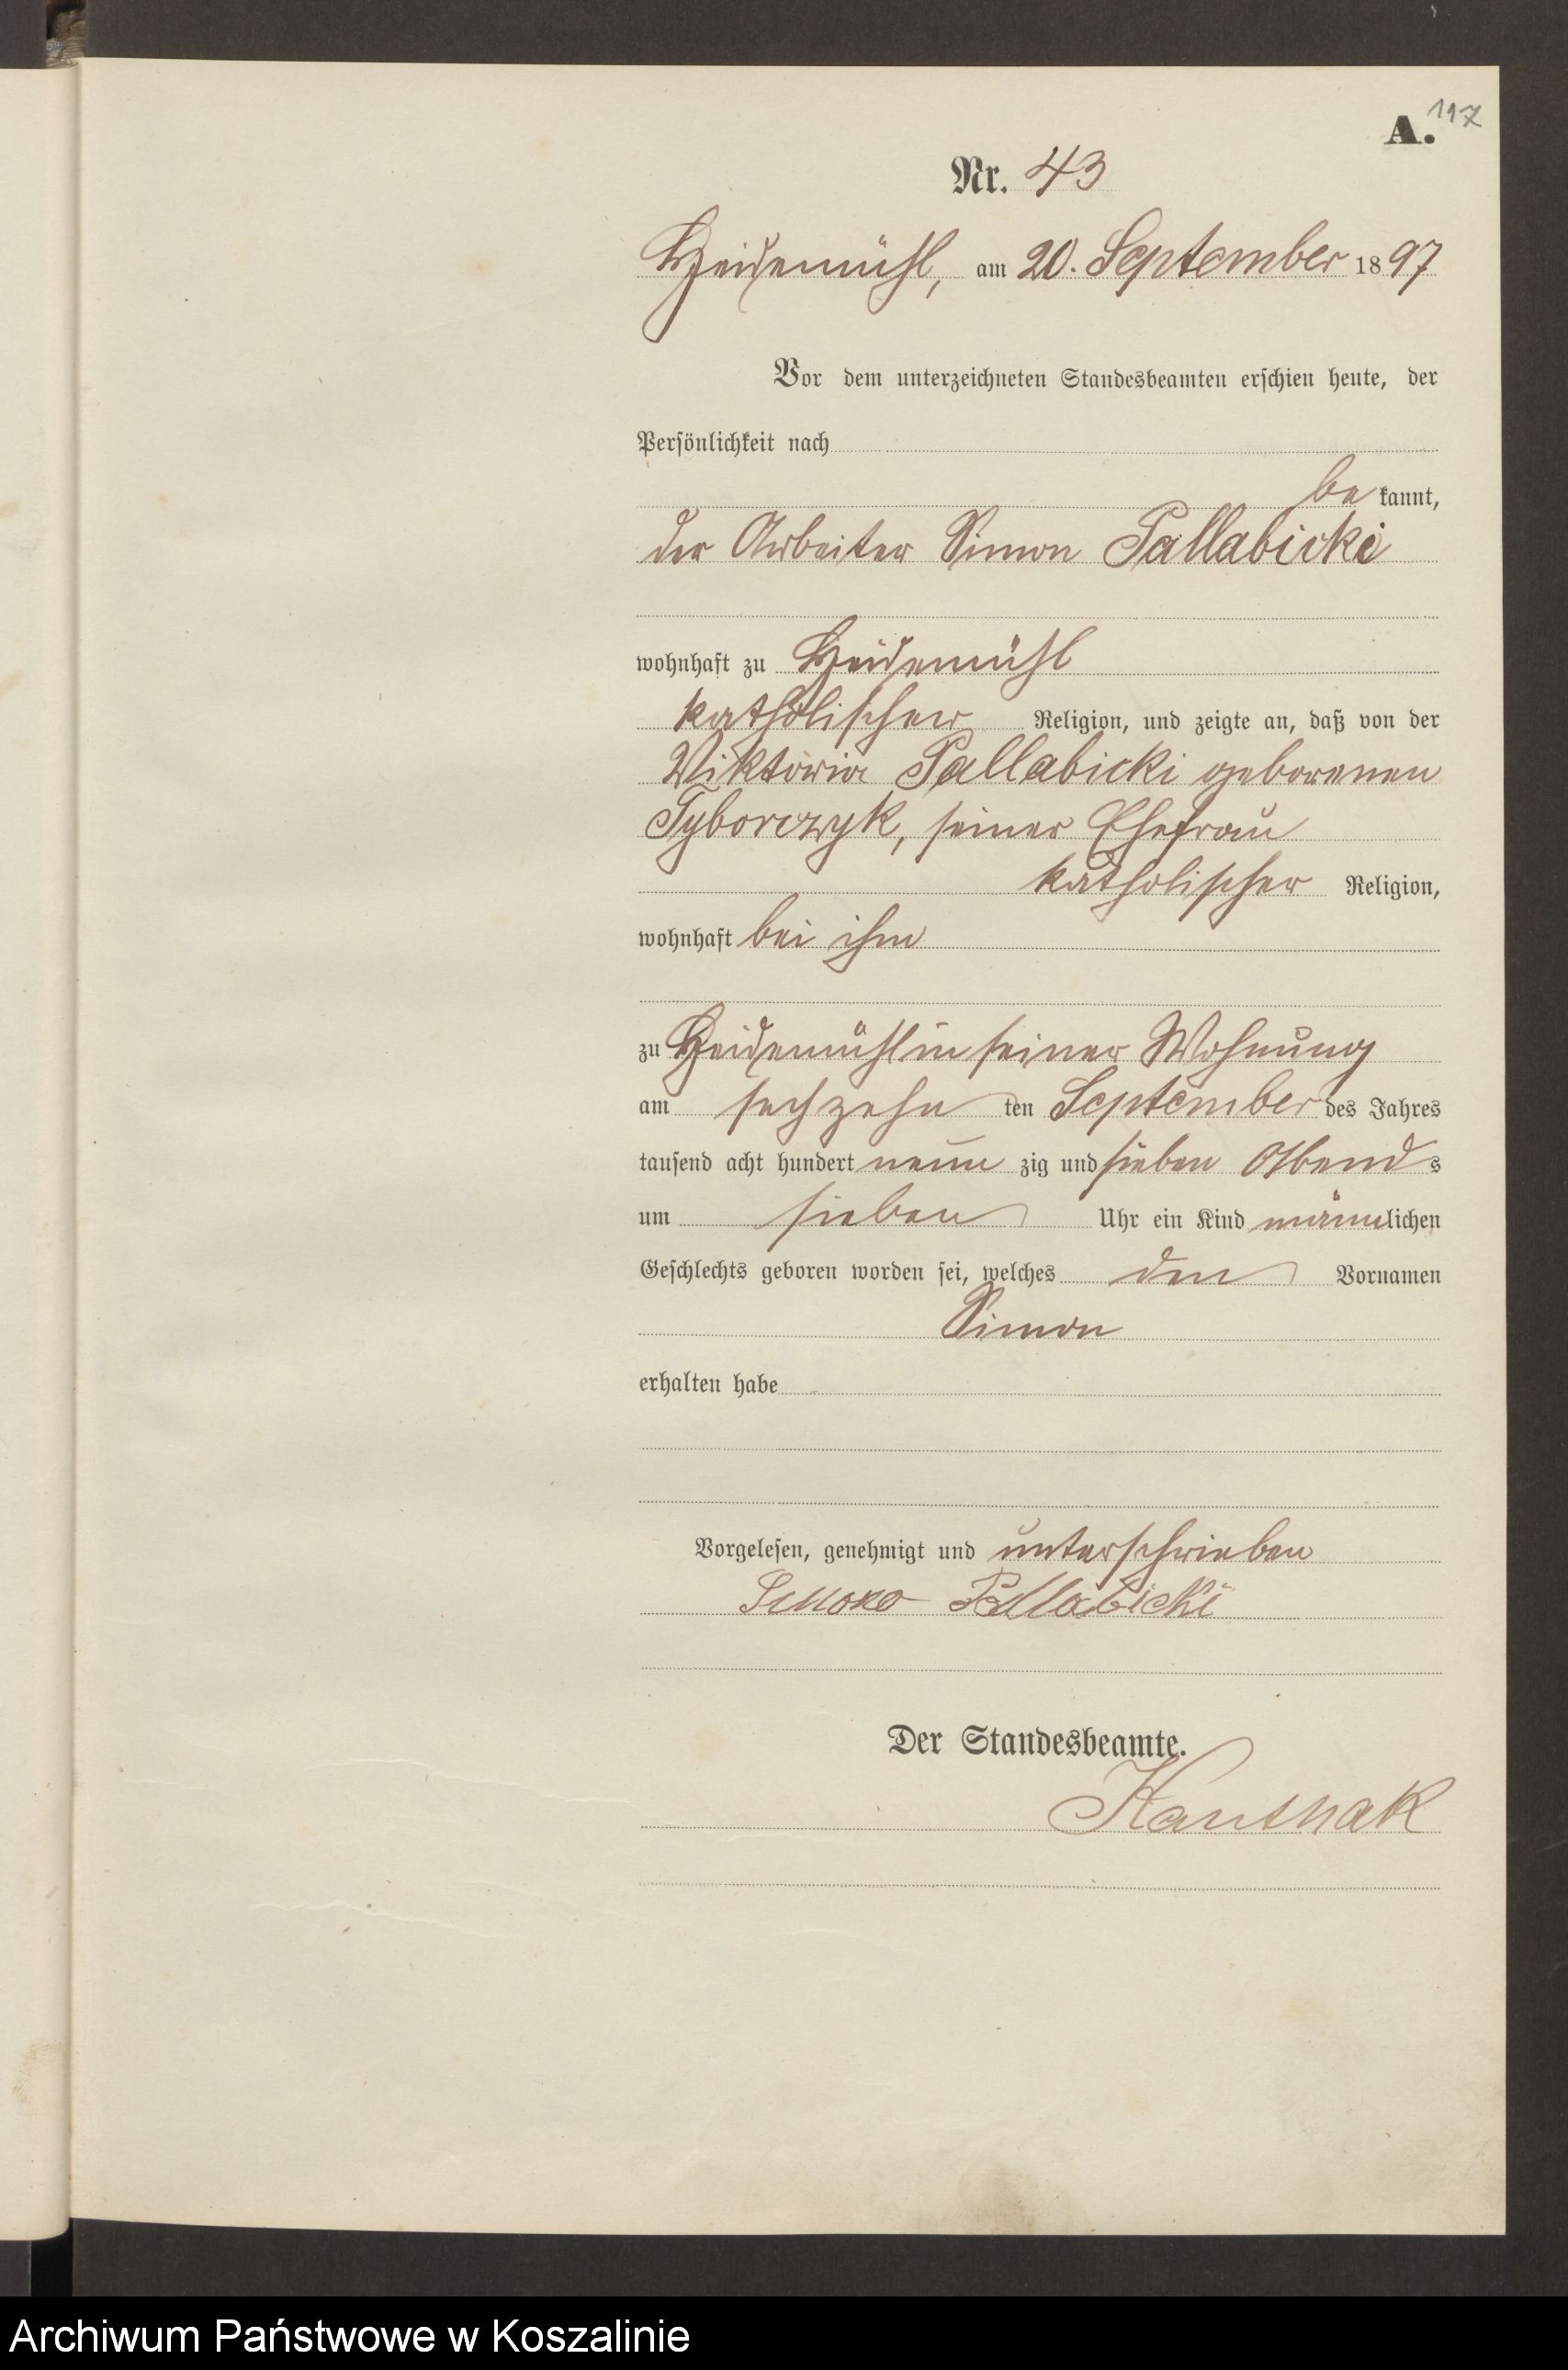 117
A.
Nr. 43
Heidemühl, am 20. September 1897
Vor dem unterzeichneten Standesbeamten erschien heute, der
Persönlichkeit nach
be kannt,
der Arbeiter Simon Pallabicki
wohnhaft zu Heidemühl
katholischer Religion, und zeigte an, daß von der
Viktoria Pallabicki geborenen
Tyborczyk, seiner Ehefrau
katholischer Religion,
wohnhaft bei ihm
zu Heidemühl in seiner Wohnung
am sechzehn ten September des Jahres
tausend acht hundert neun zig und sieben Abends
um sieben Uhr ein Kind männlichen
Geschlechts geboren worden sei, welches den Vornamen
Simon
erhalten habe
Vorgelesen, genehmigt und unterschrieben
Pallabicki
Der Standesbeamte.
Kanthak
Archiwum Państwowe w Koszalinie